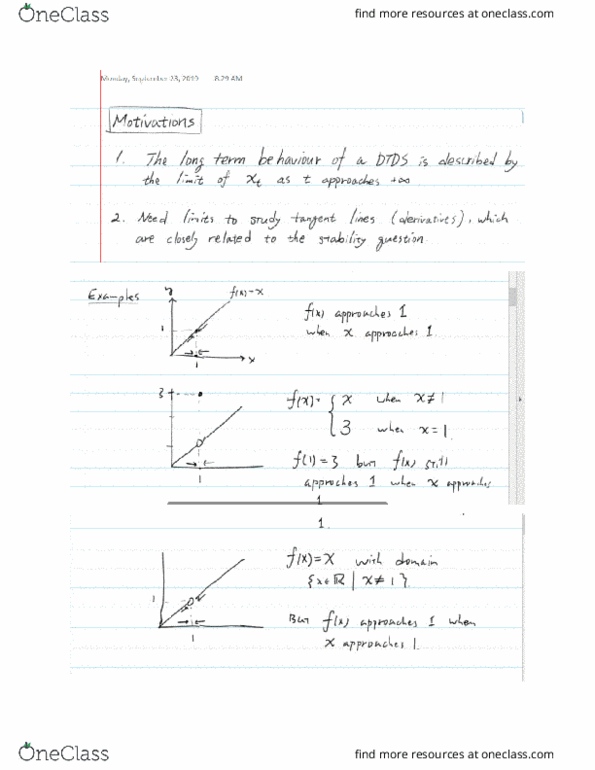 OneClass
find more resources at oneclass.com
Monday, September 23, 2019 8:29 AM
Motivations
1. The long term behaviour of a DTDS is described by
the limit of xt as t approaches +∞
2. Need limits to study tangent lines (derivatives), which
are closely related to the stability question.
Examples
y
f(x)=x
1
1
x
f(x) approaches 1
when x approaches 1.
3
1
f(x)= { x when x≠1
3 when x=1.
f(1)=3 but f(x) still
approaches 1 when x approaches
1
1.
1
1
f(x)=x with domain
{x∈ℝ | x≠1}.
But f(x) approaches 1 when
x approaches 1.
OneClass
find more resources at oneclass.com